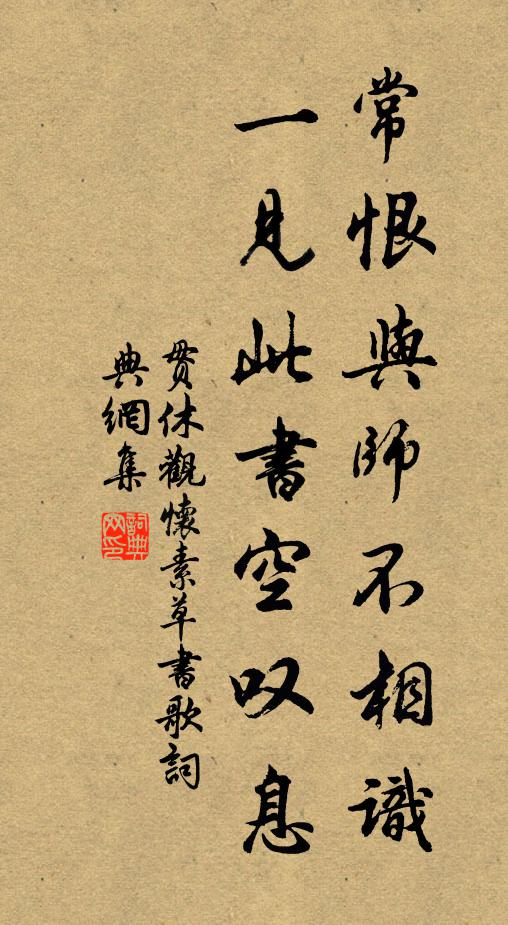 常恨與師不相識
一見此書空叹息
貫休觀懷素草書歌詞
典網集
詞典
网印